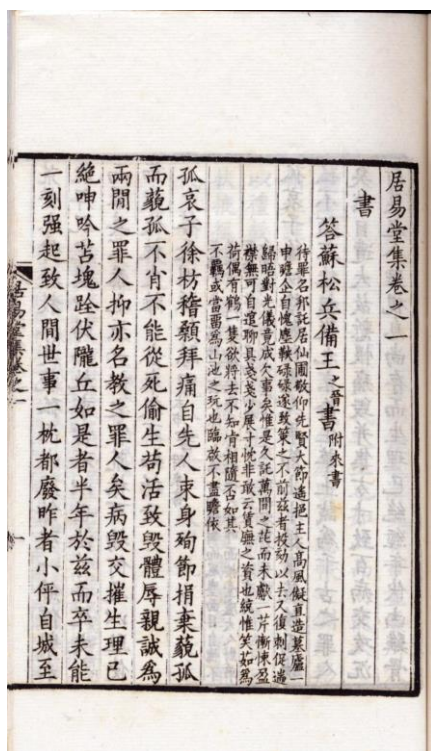 居易堂集卷之一
書
答蘇松兵備王之晉書附來書
待罪名邦託居仙圃敬仰先賢大節遙挹主人高風擬直造墓廬一
申疆企自愧塵鞅碌碌遂致策之不前茲者投劾以去又復刺促遄
歸晤對光儀竟成欠事矣惟是久託萬閒之庇而未獻一芹慚悚盈
襟無可自遣聊具戔戔少展寸忱非敢云賃廡之資也統惟笑茹爲
荷偶有鶴一隻欲將去不知肯相隨否如其
不羈或當留爲山池之玩也臨啟不盡瞻依
孤哀子徐枋稽顙拜痛自先人束身殉節捐棄藐孤
而藐孤不肖不能從死偷生苟活致毀體辱親誠爲
兩閒之罪人抑亦名教之罪人矣病毀交摧生理已
絕呻吟苫塊跧伏隴丘如是者半年於茲而卒未能
一刻强起致人閒世事一枕都廢昨者小伻自城至
居易堂集卷之一
一